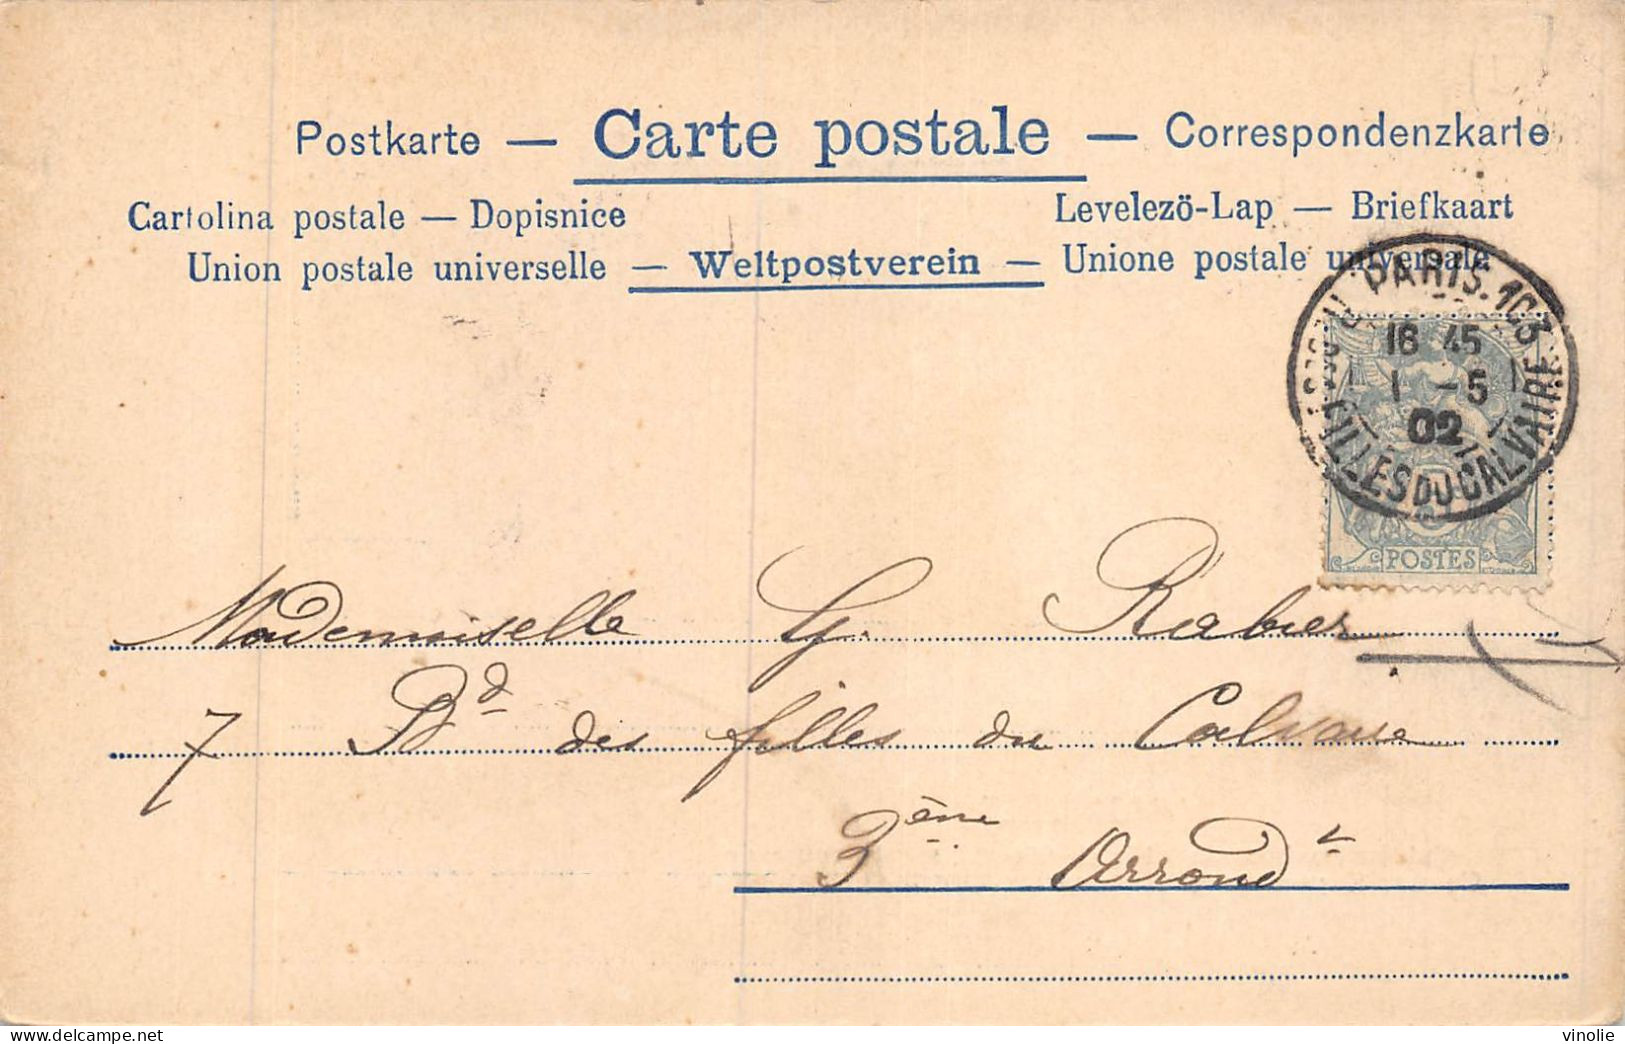 Postkarte — Carte postale — Correspondenzkarte
Cartolina postale — Dopisnice
Levelezö-Lap — Briefkaart
Union postale universelle — Weltpostverein — Unione postale universale
PARIS. 103
18 45
1 - 5
02
FILLES DU CALVAIRE
POSTES
Mademoiselle G. Rabier
7 Bd des filles du Calvaire
3ème Arrondt
www.delcampe.net
vinolie